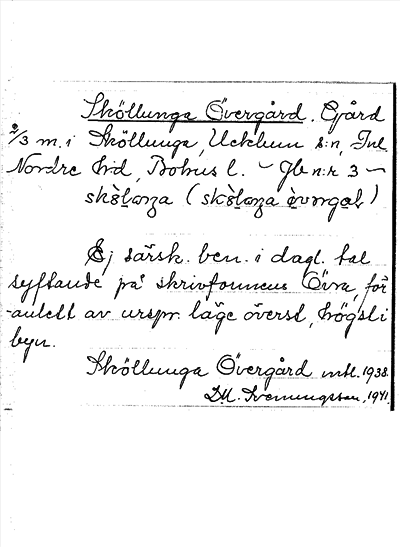 Sköllunga Övergård. Gård
2/3 m. i Sköllunga, Ucklum s:n, Inl.
Nordre hd, Bohus l. – Jb n:r 3 –
Ej särsk. ben. i dagl. tal
syftande på skrivformens Övra, för-
anlett av urspr. läge överst, högst i
byn.
Sköllunga Övergård mtl. 1938.
D.M. Svenningsson, 1941.